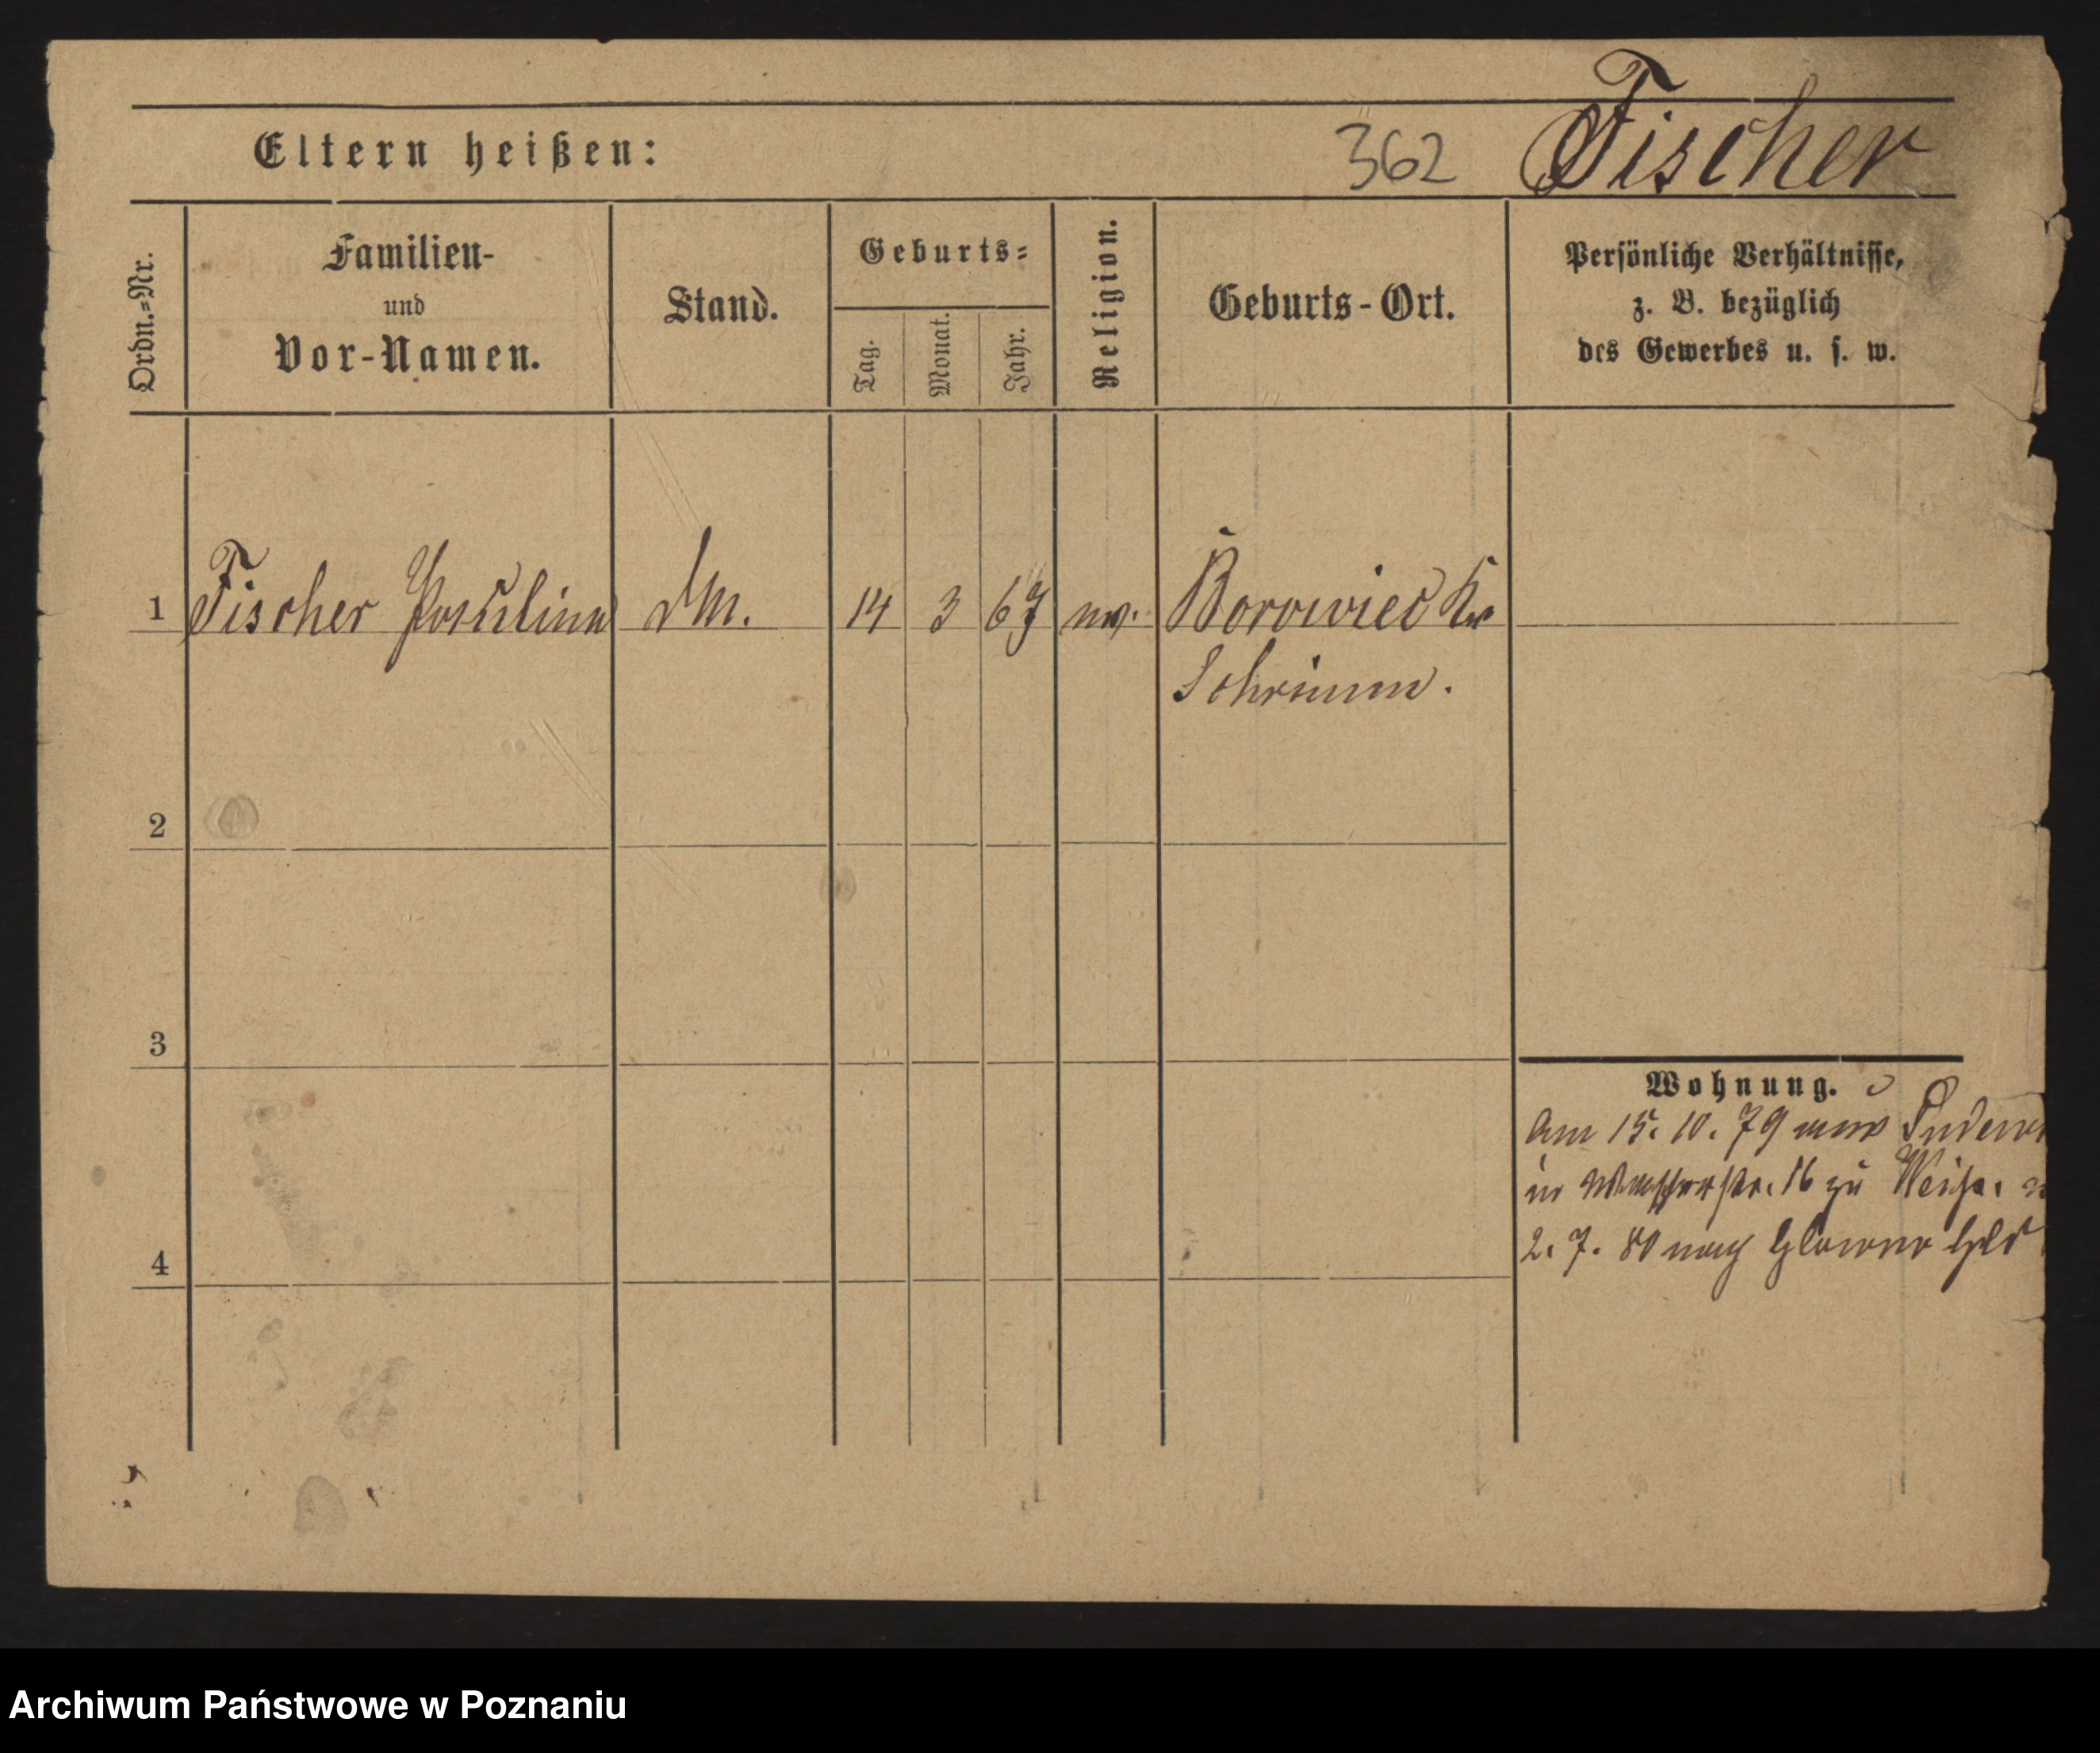 Eltern heißen:
362 Fischer
Ordn.=Nr.
Familien-
und
Vor-Namen.
Stand.
Geburts=
Tag.
Monat.
Jahr.
Religion.
Geburts-Ort.
Persönliche Verhältnisse,
z. B. bezüglich
des Gewerbes u. s. w.
1 Fischer Pauline DM. 14 3 67 ev. Borowiec Kr
Schrimm.
2
3
4
Wohnung.
Am 15. 10. 79 aus
in Wasserstr. 16 zu
2. 7. 80 nach Glowno
Archiwum Państwowe w Poznaniu